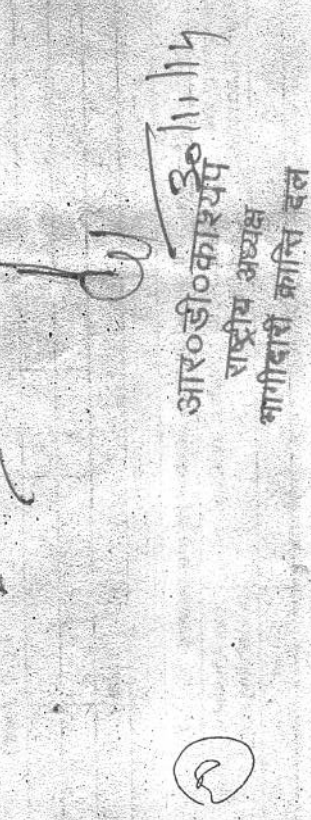 30/11/14
आर०डी०काश्यप
राष्ट्रीय अध्यक्ष
भागीदारी क्रान्ति दल